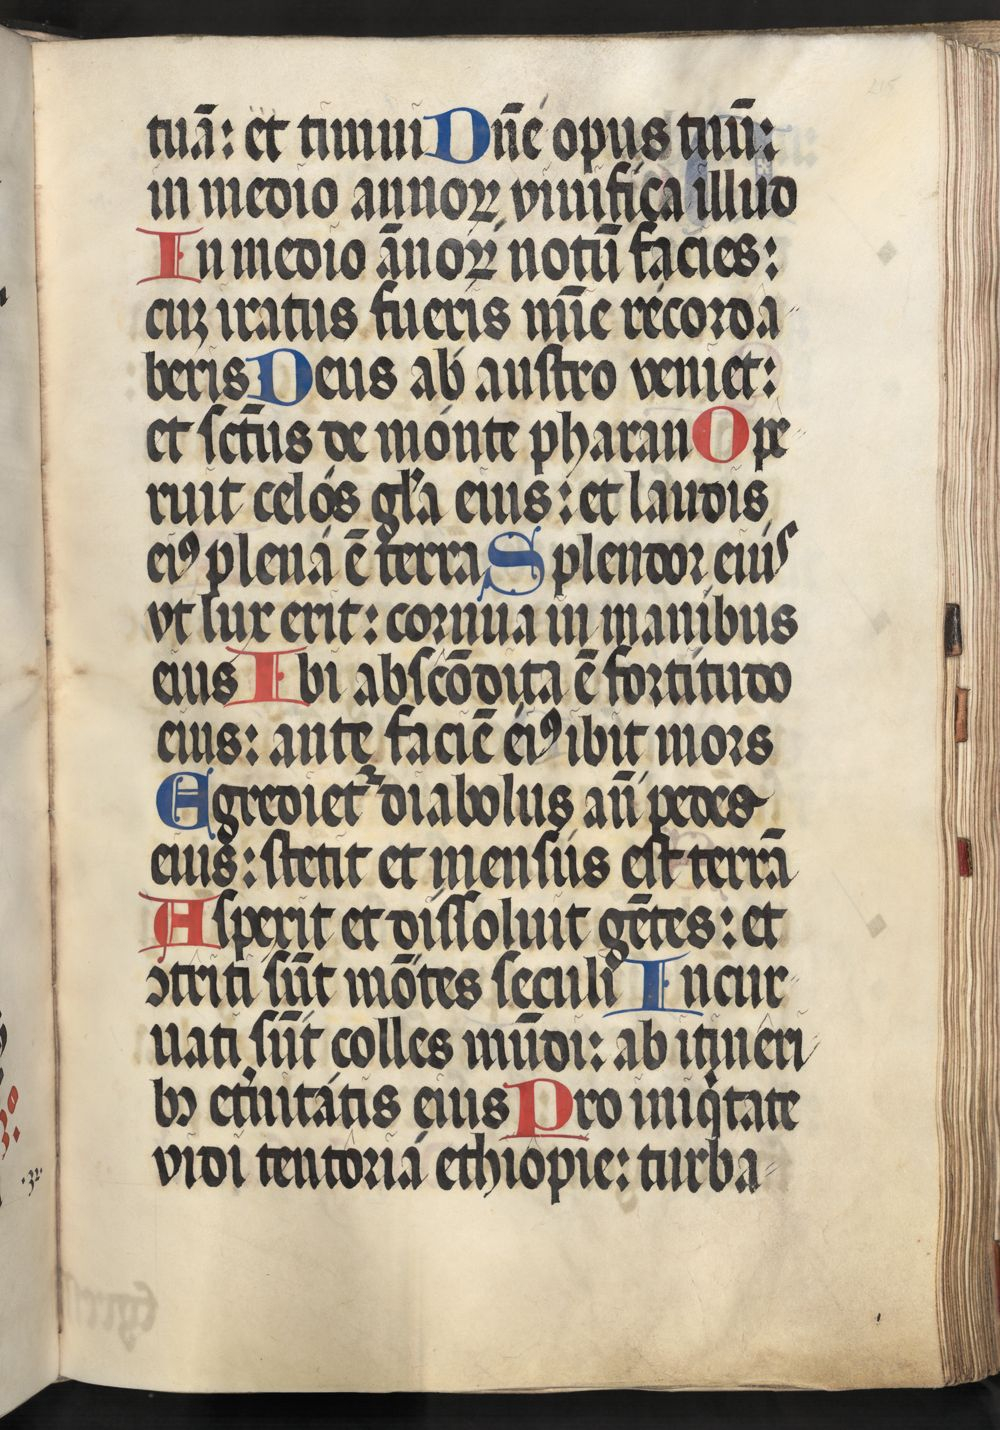 tuā: et timui Dn̄e opus tuū:
in medio annoꝝ viuifica illud
In medio ānoꝝ notū facies:
cuȝ iratus fueris nūc recorda
beris Deus ab austro veniet:
et sct̄us de monte pharan Ope
ruit celos gl̄a eius: et laudis
eiꝰ plena ē terra Splendor eius
vt lux erit: cornua in manibus
eius Ibi abscōdita ē fortitudo
eius: ante faciē eiꝰ ibit mors
Egrediet᷑ diabolus an̄ pedes
eius: stetit et mensus est terrā
Asperit et dissoluit gētes: et
ↄtriti sūt mōtes seculi Incur
uati sūt colles mūdi: ab itineri
bꝫ et̄nitatis eius Pro iniqͥtate
vidi tentoria ethiopie: turba